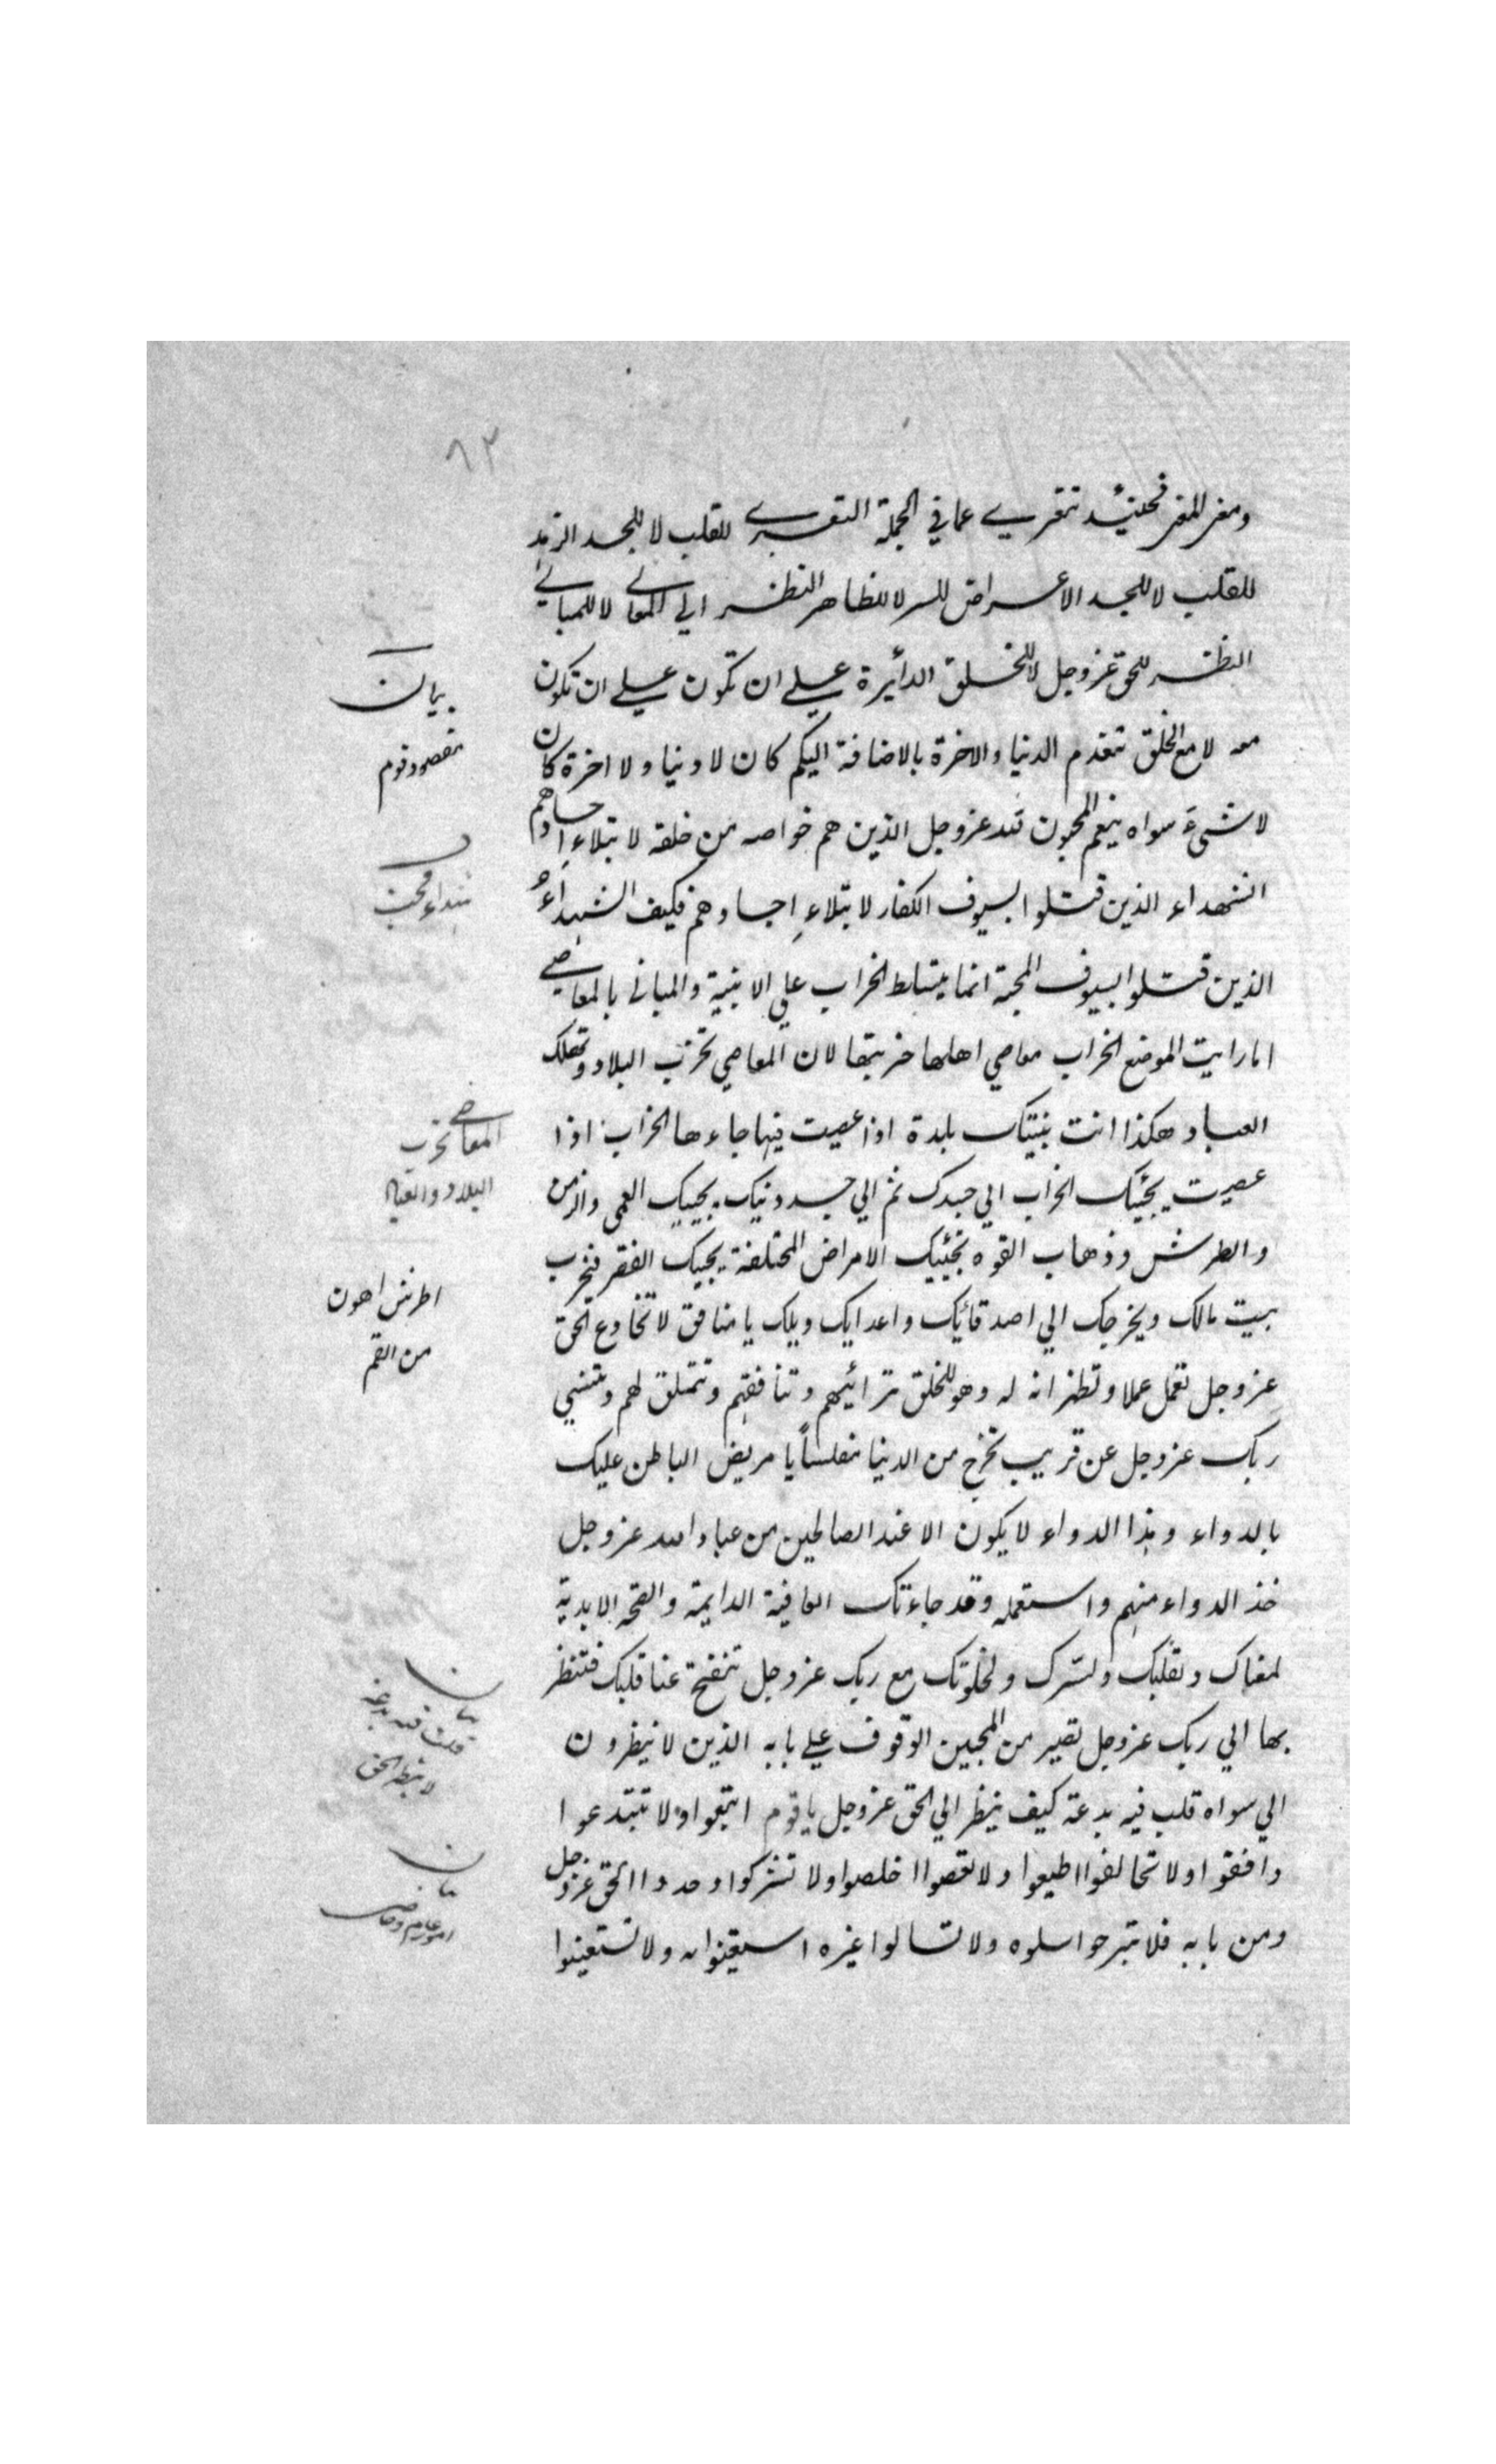 ٨٣
ومغز المغز فحينئذ تتقري عما في الجملة التقرى للقلب لا للجسد الزهد
للقلب لا للجسد الاعراض للسر لا للظاهر النظر الي المعاني لا للمباني
النظر للحق عز وجل لا للخلق الدائرة علي ان تكون علي ان تكون
معه لا مع الخلق تتقدم الدنيا والاخرة بالاضافة اليكم كان لا دنيا ولا اخرة كان
لا شئ سواه ينعم المحبون لله عز وجل الذين هم خواصه من خلقه لابتلاء اجسادهم
الشهداء الذين قتلوا بسيوف الكفار لابتلاءِ اجسادهم فكيف الشهداءُ
الذين قتلوا بسيوف المحبة انما يتسلط الخراب علي الابنية والمباني بالمعاصي
اما رايت الموضع الخراب معاصي اهلها خربتها لان المعاصي تخرب البلاد وتهلك
العباد هكذا انت بنيتك بلدة اذا عصيت فيها جاءها الخراب اذا
عصيت يجئيك الخراب الي جسدك ثم الي جسد دنيك يجيك العمى والزمن
والطرش وذهاب القوه تجئيك الامراض المختلفة يجيك الفقر فيخرب
بيت مالك ويخرجك الي اصدقائك واعدايك ويلك يا منافق لا تخادع الحق
عز وجل تعمل عملا وتظهر انه له وهو للخلق ترائيهم وتنافقهم وتتملق لهم وتنسي
ربك عز وجل عن قريب تخرج من الدنيا مفلساً يا مريض الباطن عليك
بالدواء وهذا الدواء لا يكون الا عند الصالحين من عباد الله عز وجل
خذ الدواء منهم واستعمله وقد جاءتك العافية الدايمة والصحة الابدية
لمعناك ولقلبك ولسّرك ولخلوتك مع ربك عز وجل تنفتح عينا قلبك فتنظر
بها الي ربك عز وجل تصير من المحبين الوقوف علي بابه الذين لا ينظرون
الي سواه قلب فيه بدعة كيف ينظر الي الحق عز وجل يا قوم اتبعوا ولا تبتدعوا
وافقوا ولا تخالفوا اطيعوا ولا تعصوا اخلصوا ولا تشركوا وحدوا الحق عز وجل
ومن بابه فلا تبرحوا سلوه ولا تسالوا غيره استعينوا به ولا تستعينوا
بيان
مقصود قوم
شهداء محبت
المعاصي تخرب
البلاد والعباد
اطرش اهون
من
بيان
قلب فيه بدعة
لا ينظر الحق
بيان
امور عام وخاص